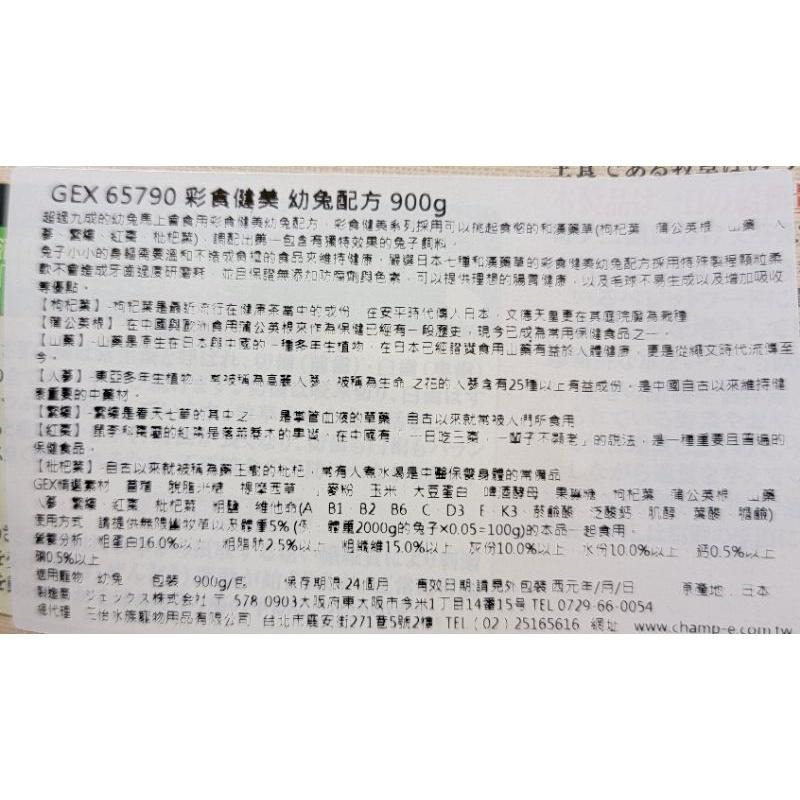 GEX 65790 彩食健美 幼兔配方 900g
超過九成的幼兔馬上會食用彩食健美幼兔配方,彩食健美系列採用可以挑起食慾的和漢藥草(枸杞葉 蒲公英根 山藥 人
蔘、繁縷、紅棗、枇杷葉),調配出第一包含有獨特效果的兔子飼料。
兔子小小的身軀需要溫和不造成負擔的食品來維持健康,嚴選日本七種和漢藥草的彩食健美幼兔配方採用特殊製程顆粒柔
軟不會造成牙齒過度研磨耗,並且保證無添加防腐劑與色素,可以提供理想的腸胃健康,以及毛球不易生成以及增加吸收
等優點。
【枸杞葉】-枸杞葉是最近流行在健康茶當中的成份,在安平時代傳入日本,文德天皇更在其庭院廣為栽種
【蒲公英根】-在中國與歐洲食用蒲公英根來作為保健已經有一段歷史,現今已成為常用保健食品之一。
【山藥】-山藥是原生在日本與中國的一種多年生植物,在日本已經證實食用山藥有益於人體健康,更是從繩文時代流傳至
今。
【人蔘】-東亞多年生植物,常被稱為高麗人蔘,被稱為生命之花的人蔘含有25種以上有益成份,是中國自古以來維持健
康重要的中藥材。
【繁縷】-繁縷是春天七草的其中之一,是掌管血液的草藥,自古以來就常被人們所食用
【紅棗】-鼠李科棗屬的紅棗是落葉喬木的果實,在中國有「一日吃三棗,一輩子不顯老」的說法,是一種重要且普遍的
保健食品。
【枇杷葉】-自古以來就被稱為藥王樹的枇杷,常有人煮水喝是中醫保養身體的常備品
GEX精選素材 苜蓿 脫脂米糠 提摩西草 麥粉 玉米 大豆蛋白 啤酒酵母 果寡糖 枸杞葉 蒲公英根 山藥
人蔘 繁縷 紅棗 枇杷葉 粗鹽 維他命(A B1 B2 B6 C D3 E K3 菸鹼酸 泛酸鈣 肌醇 葉酸 膽鹼)
使用方式 請提供無限量牧草以及體重5% (例 體重2000g的兔子×0.05=100g)的本品一起食用。
營養分析 粗蛋白16.0%以上 粗脂肪2.5%以上 粗纖維15.0%以上 灰份10.0%以上 水份10.0%以上 鈣0.5%以上
磷0.5%以上
適用寵物 幼兔 包裝 900g/包 保存期限:24個月 有效日期:請見外包裝 西元年/月/日 原產地 日本
製造商 ジェックス株式会社 〒 578 0903大阪府東大阪市今米1丁目14番15号 TEL 0729-66-0054
總代理 三怡水族寵物用品有限公司 台北市龍安街271巷5號2樓 TEL (02) 25165616 網址 www.champ-e.com.tw